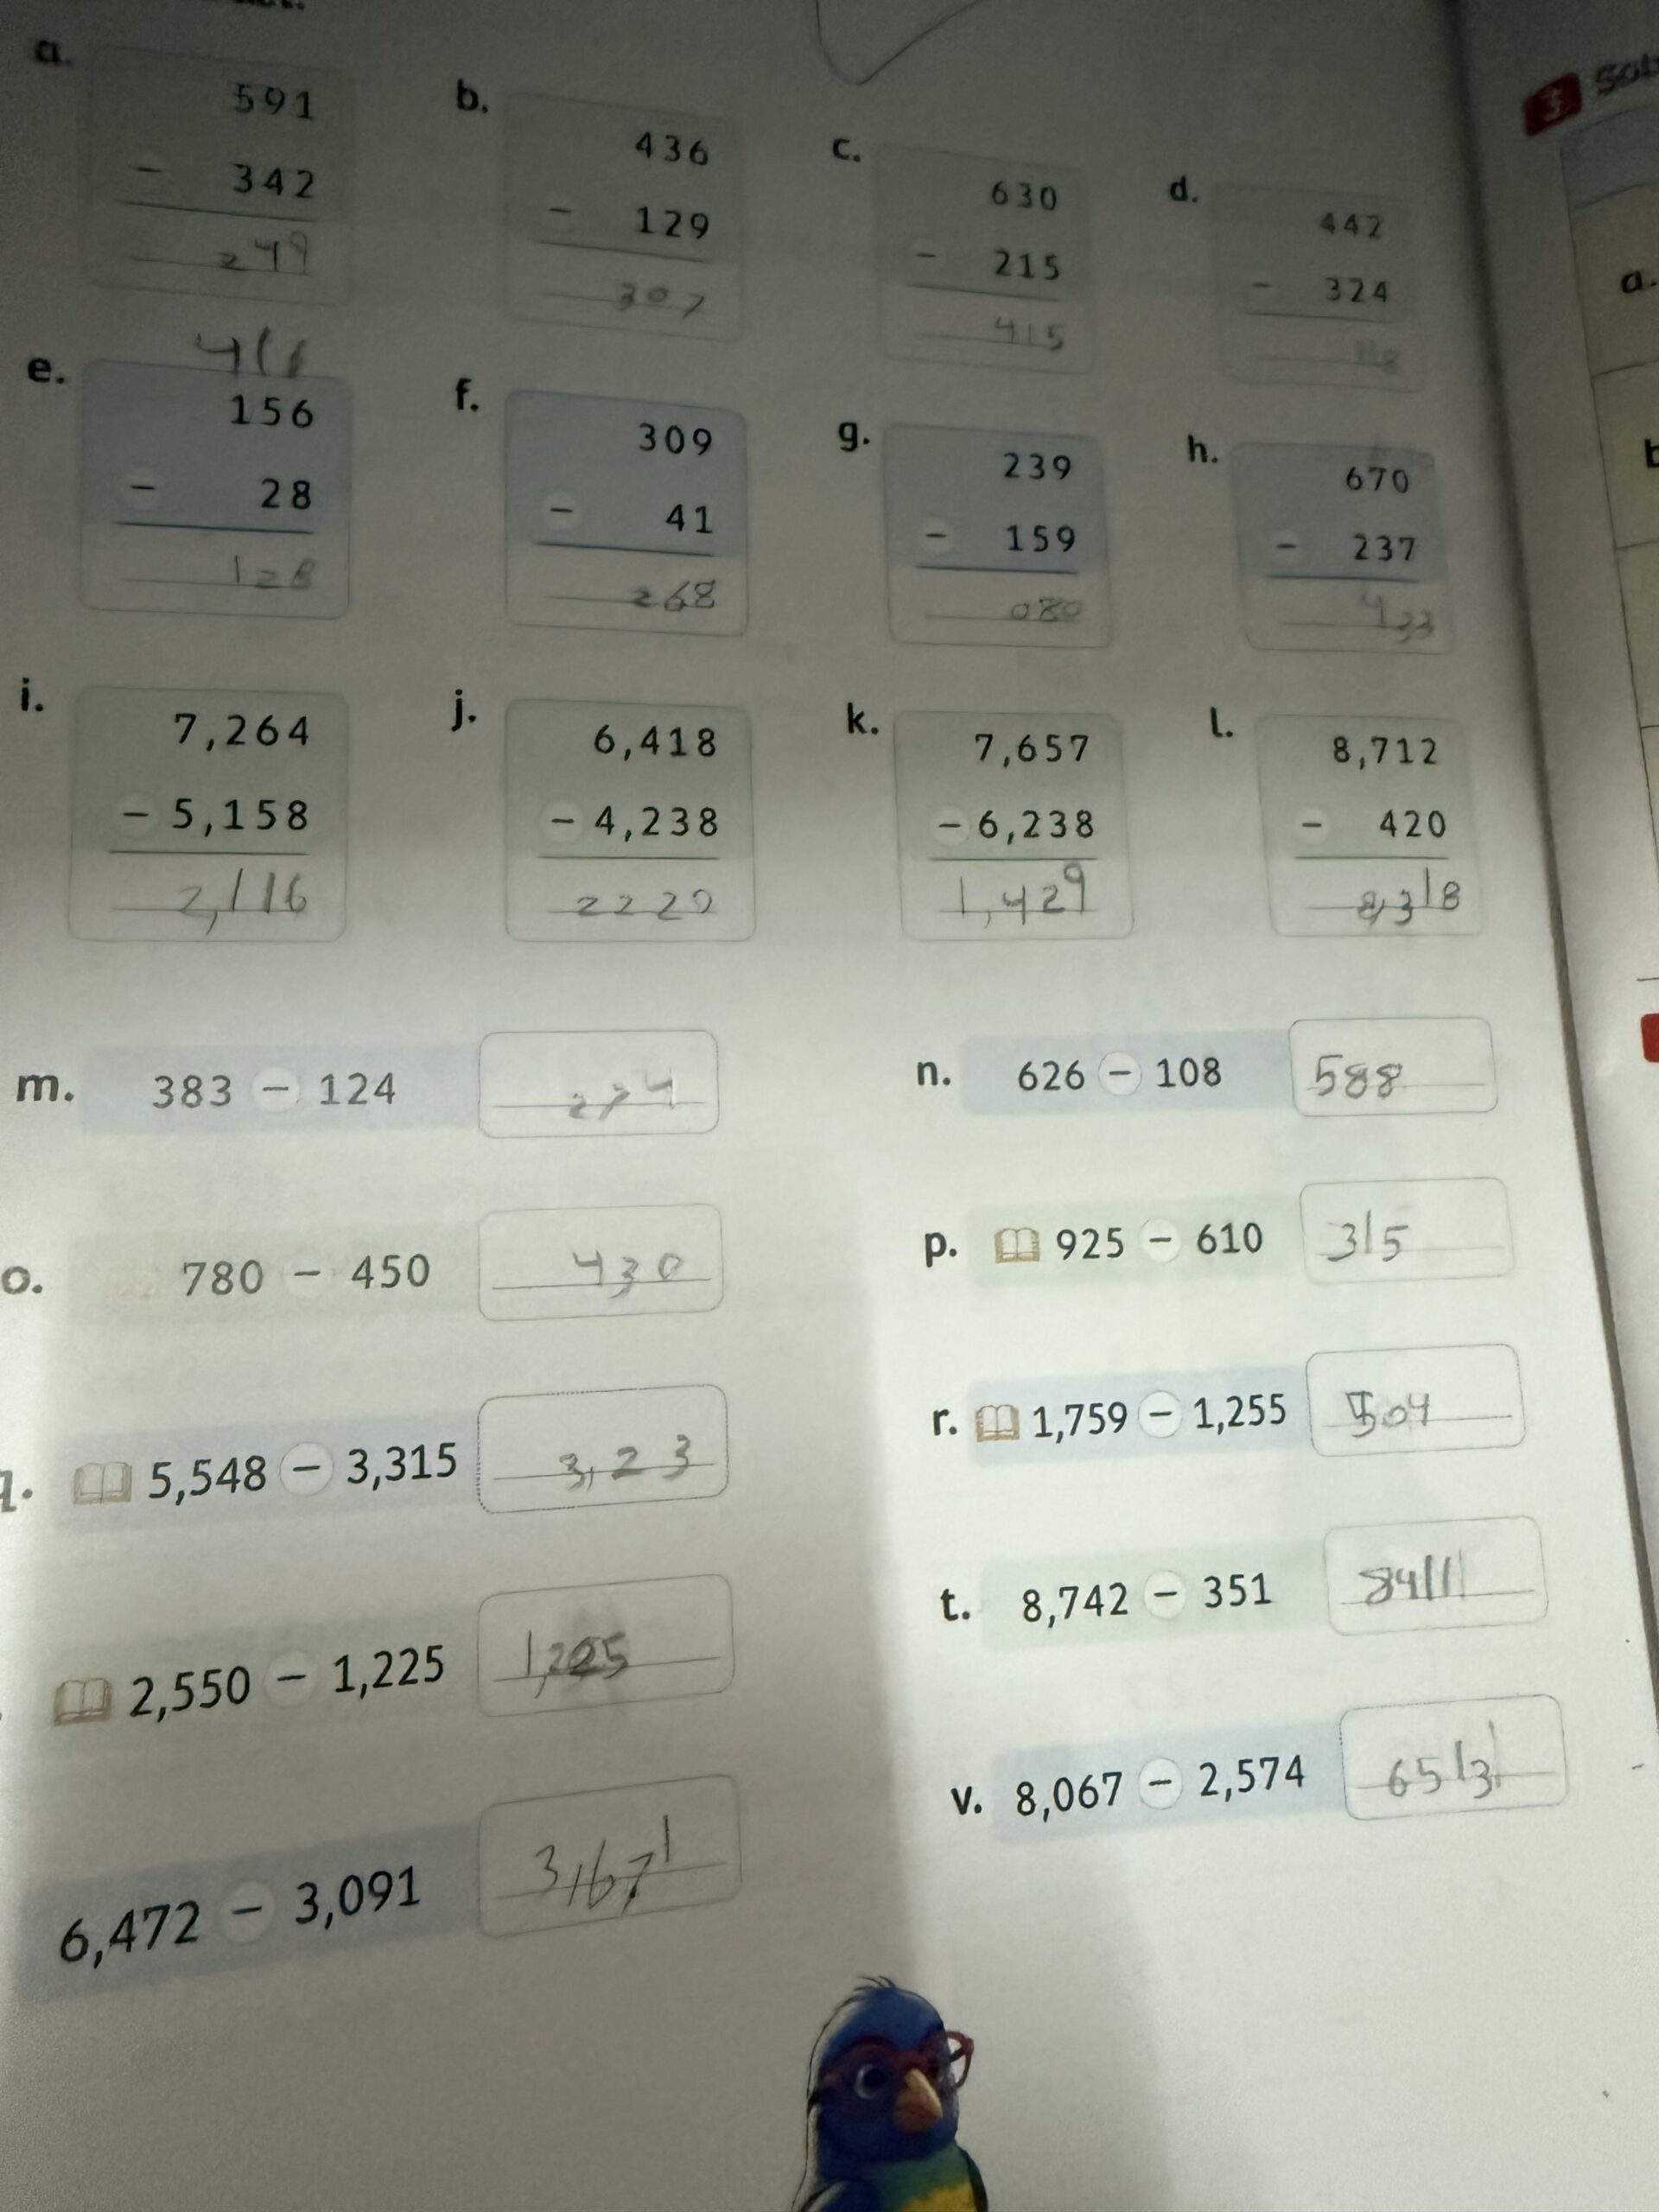 a.
591
- 342
249
b.
436
- 129
307
c.
630
- 215
415
d.
442
- 324
118
e.
156
- 28
128
f.
309
- 41
268
g.
239
- 159
080
h.
670
- 237
433
i.
7,264
- 5,158
2,116
j.
6,418
- 4,238
2220
k.
7,657
- 6,238
1,429
l.
8,712
- 420
8,318
m. 383 - 124 274
n. 626 - 108 588
o. 780 - 450 430
p. 925 - 610 315
5,548 - 3,315 3,23
r. 1,759 - 1,255 504
2,550 - 1,225
t. 8,742 - 351
6,472 - 3,091
v. 8,067 - 2,574
a.